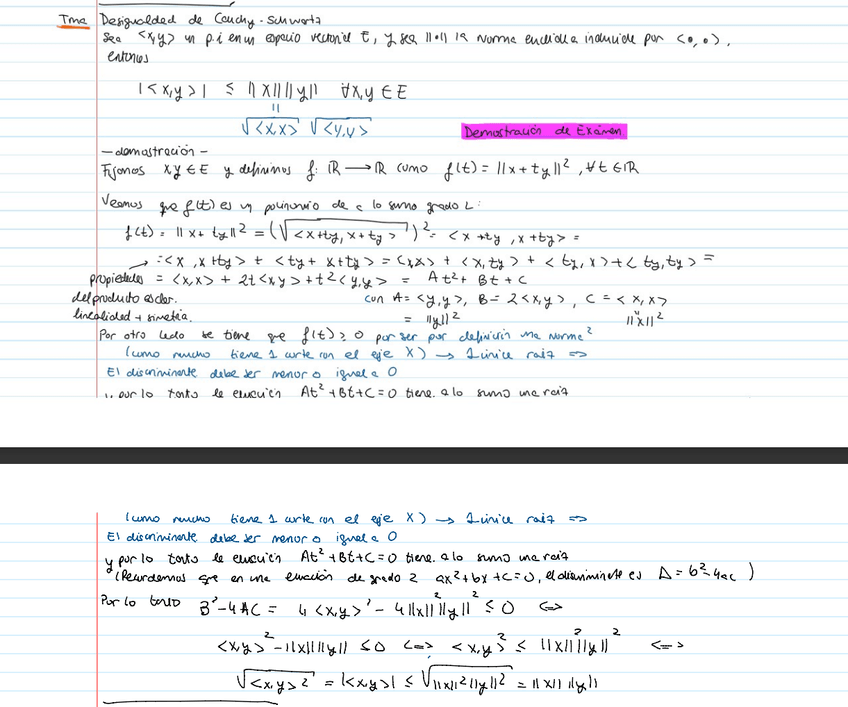 Tma Desigualdad de Cauchy-Schwartz
Sea <x,y> un p.i en un espacio vectorial E, y sea ||•|| la norma euclidea inducida por <·,·>,
entonces
|<x,y>| ≤ ||x|| ||y|| ∀x,y ∈ E
||
√<x,x> √<y,y>
Demostración de Exámen
- demostración -
Fijamos x,y ∈ E y definimos f: ℝ → ℝ como f(t) = ||x + ty||², ∀t ∈ ℝ
Veamos que f(t) es un polinomio de a lo sumo grado 2:
f(t) = ||x + ty||² = (√<x+ty, x+ty>)² = <x+ty, x+ty> =
→ = <x, x+ty> + <ty, x+ty> = <x,x> + <x,ty> + <ty,x> + <ty,ty> =
propiedades = <x,x> + 2t<x,y> + t²<y,y> = At² + Bt + C
del producto escalar. con A = <y,y>, B = 2<x,y>, C = <x,x>
linealidad + simetría = ||y||² " ||x||²
Por otro lado se tiene que f(t) ≥ 0 por ser por definición una norma²
(como mucho tiene 1 corte con el eje X) → 1 única raiz =>
El discriminante debe ser menor o igual a 0
y por lo tanto la ecuación At² + Bt + C = 0 tiene a lo sumo una raiz
(como mucho tiene 1 corte con el eje X) → 1 única raiz =>
El discriminante debe ser menor o igual a 0
y por lo tanto la ecuación At² + Bt + C = 0 tiene a lo sumo una raiz
(Recordemos que en una ecuación de grado 2 ax² + bx + c = 0, el discriminante es Δ = b² - 4ac)
Por lo tanto B² - 4AC = 4<x,y>² - 4||x||²||y||² ≤ 0 <=>
<x,y>² - ||x|| ||y|| ≤ 0 <=> <x,y>² ≤ ||x||² ||y||² <=>
√<x,y>² = |<x,y>| ≤ √||x||²||y||² = ||x|| ||y||